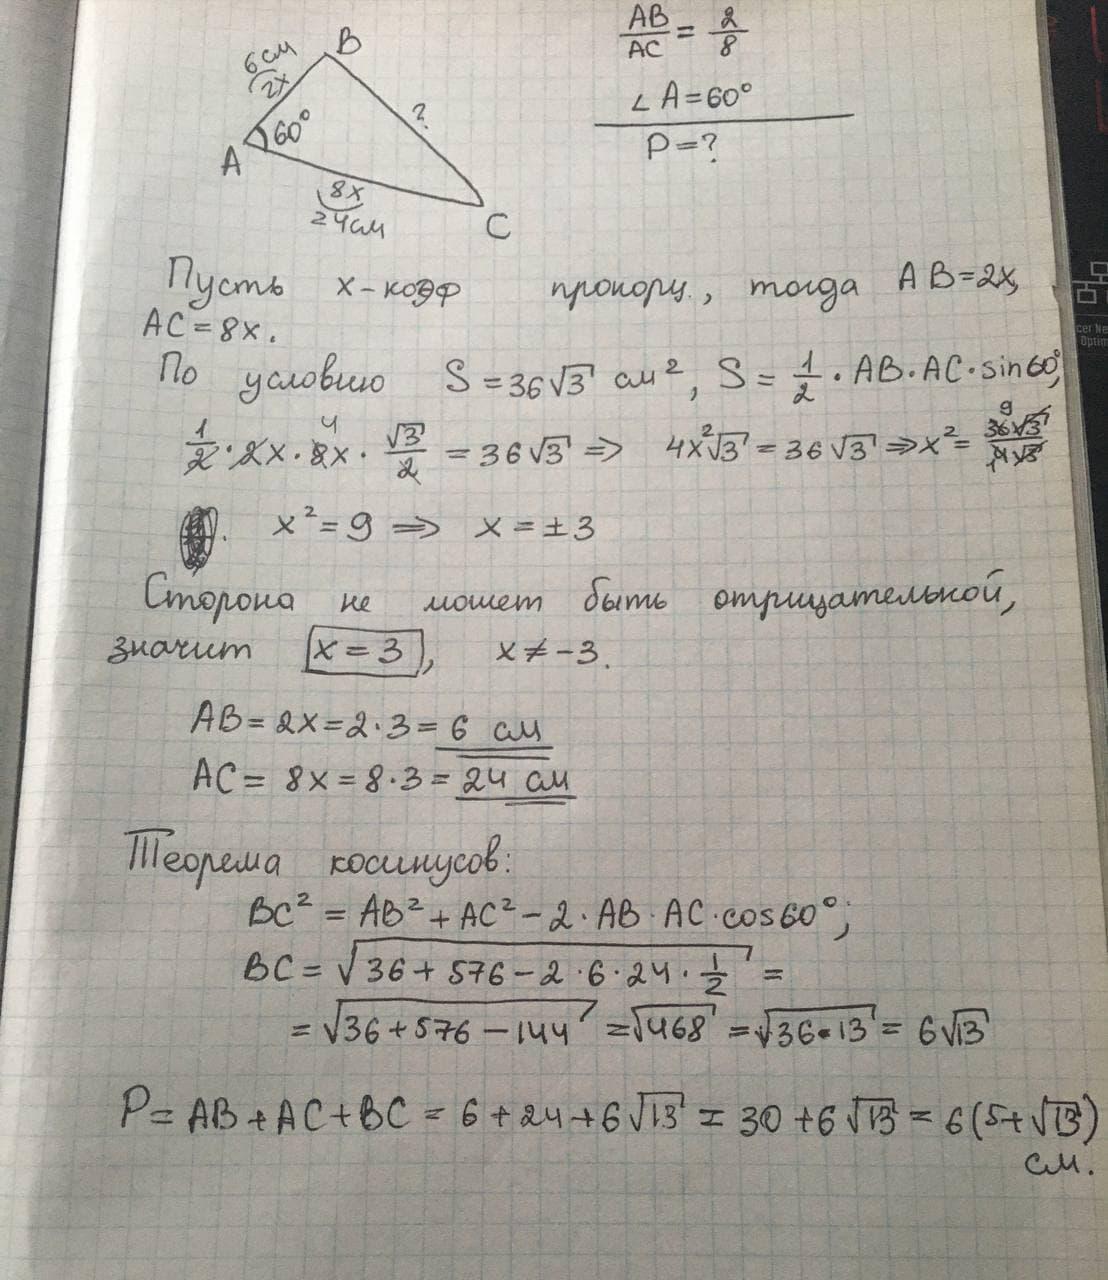 B
6 см
2x
60°
?
A
8x
24 см
C
AB/AC = 2/8
∠A=60°
P=?
Пусть x-коэф пропорц., тогда AB=2x,
AC=8x.
По условию S=36√3 см², S=1/2·AB·AC·sin60°,
1/2·2x·8x·√3/2=36√3 ⇒ 4x²√3=36√3 ⇒ x²=36√3/4√3
4
9
x²=9 ⇒ x=±3
Сторона не может быть отрицательной,
значит x=3, x≠-3.
AB=2x=2·3=6 см
AC=8x=8·3=24 см
Теорема косинусов:
BC²=AB²+AC²-2·AB·AC·cos60°;
BC=√36+576-2·6·24·1/2=
=√36+576-144=√468=√36·13=6√13
P=AB+AC+BC=6+24+6√13=30+6√13=6(5+√13)
см.
cer Ne
Optim